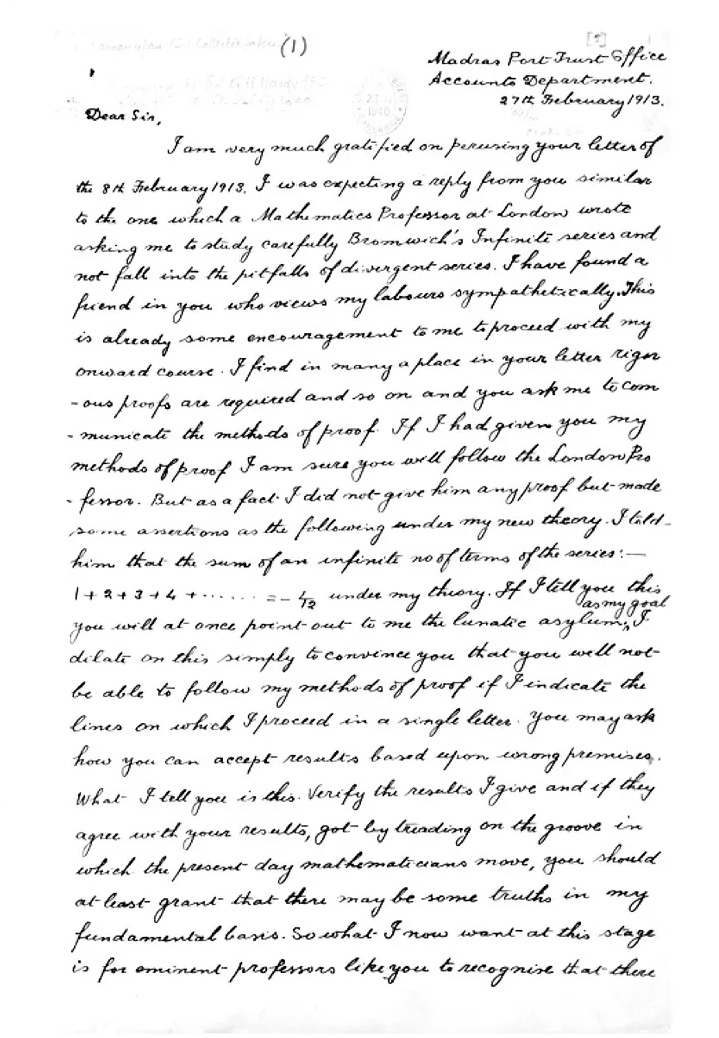 (1)
Madras Port Trust Office
Accounts Department.
27th February 1913.
Dear Sir,
I am very much gratified on perusing your letter of
the 8th February 1913. I was expecting a reply from you similar
to the one which a Mathematics Professor at London wrote
asking me to study carefully Bromwich's Infinite series and
not fall into the pitfalls of divergent series. I have found a
friend in you who views my labours sympathetically. This
is already some encouragement to me to proceed with my
onward course. I find in many a place in your letter rigor
-ous proofs are required and so on and you ask me to com
-municate the methods of proof. If I had given you my
methods of proof I am sure you will follow the London Pro
-fessor. But as a fact I did not give him any proof but made
some assertions as the following under my new theory. I told
him that the sum of an infinite no of terms of the series:—
1+2+3+4+······ = -1/12 under my theory. If I tell you this
as my goal
you will at once point out to me the lunatic asylum‸. I
dilate on this simply to convince you that you will not
be able to follow my methods of proof if I indicate the
lines on which I proceed in a single letter. You may ask
how you can accept results based upon wrong premises.
What I tell you is this. Verify the results I give and if they
agree with your results, got by treading on the groove in
which the present day mathematicians move, you should
at least grant that there may be some truths in my
fundamental basis. So what I now want at this stage
is for eminent professors like you to recognise that there